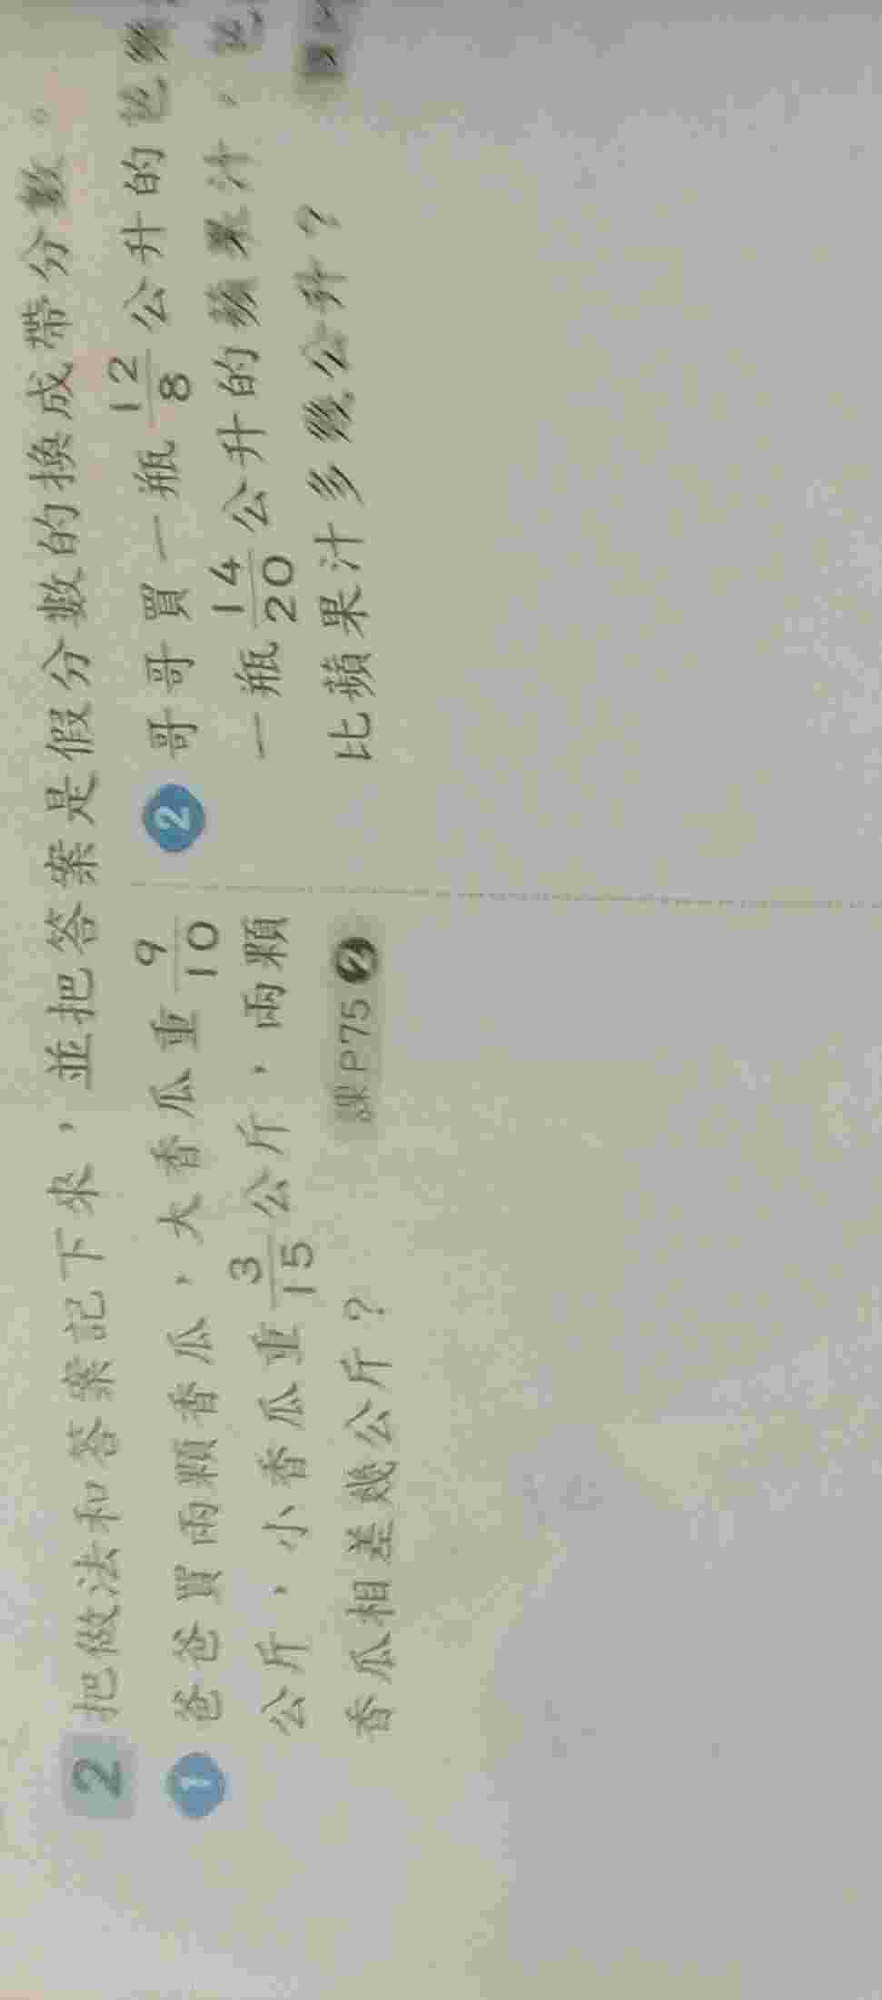 2 把做法和答案記下來，並把答案是假分數的換成帶分數。
1 爸爸買兩顆香瓜，大香瓜重 9/10
公斤，小香瓜重 3/15 公斤，兩顆
香瓜相差幾公斤？
課P75 2
2 哥哥買一瓶 12/8 公升的
一瓶 14/20 公升的蘋果汁，
比蘋果汁多幾公升？